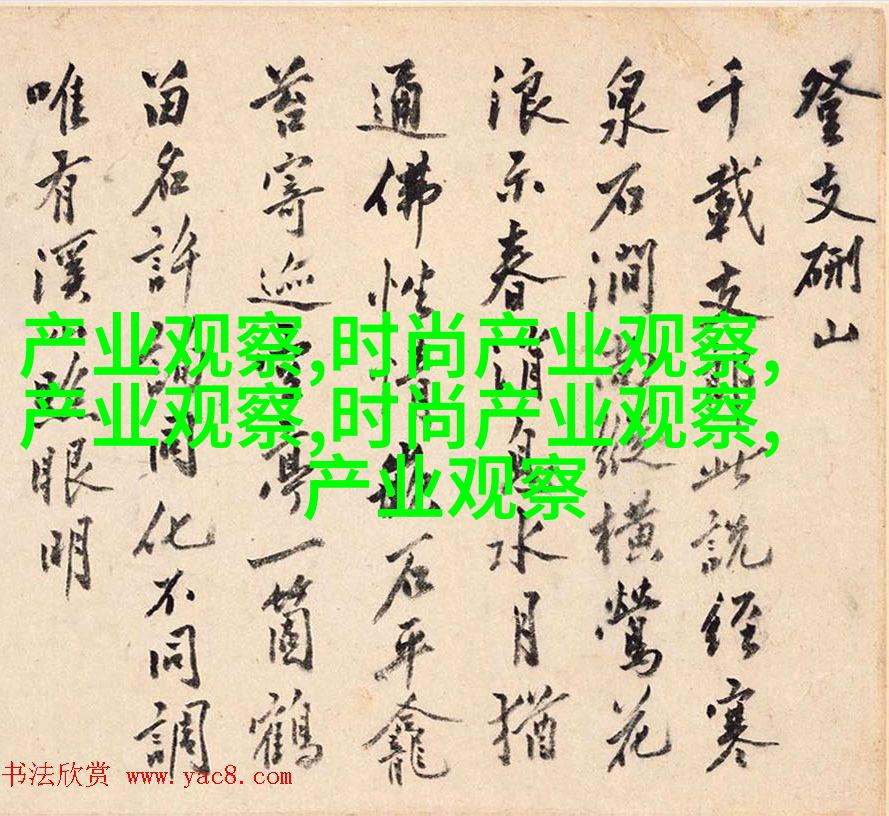 登支硎山
千載支此說經寒
泉石澗縱橫鶯花
浪示春消息水月猶
通佛性石平龕
苔寄巡亭一箇鶴
留名許同化不同調
唯有溪山照眼明
产业观察,时尚产业观察,
产业观察,时尚产业观察,
产业观察
书法欣赏 www.yac8.com